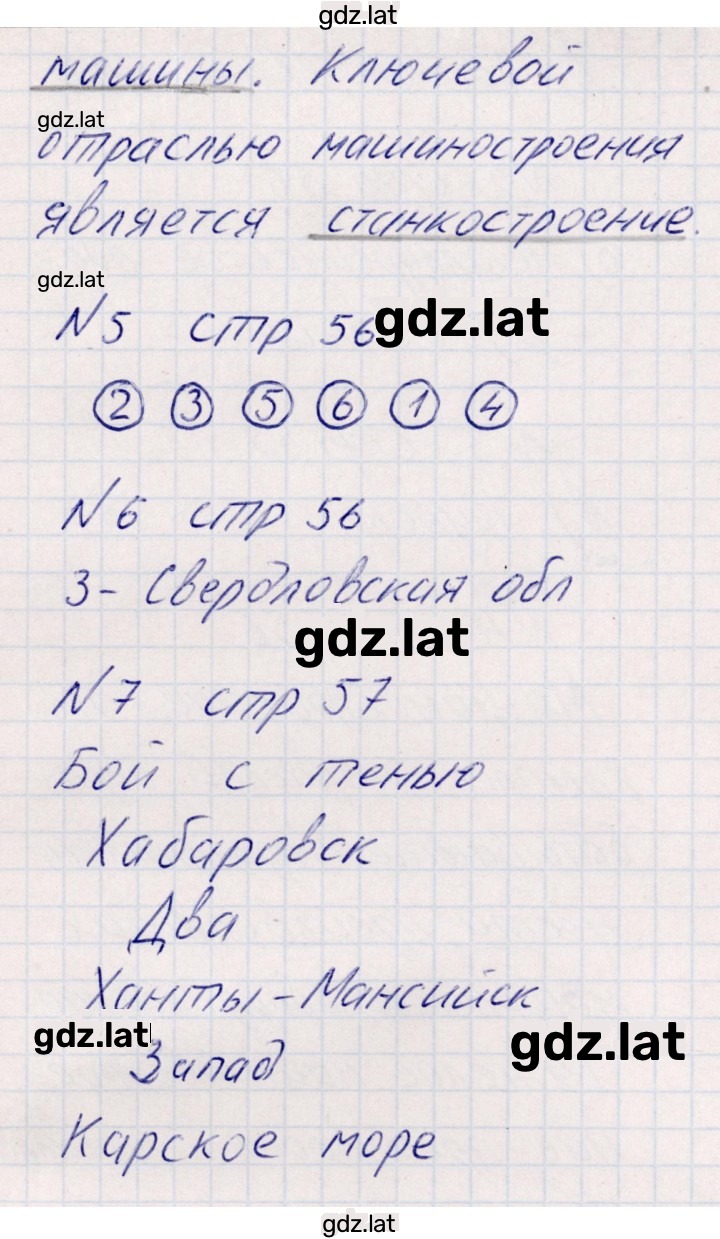 gdz.lat
машины. Ключевой
gdz.lat
отраслью машиностроения
является станкостроение.
gdz.lat
N5 стр 56 gdz.lat
2 3 5 6 1 4
N6 стр 56
3- Свердловская обл
gdz.lat
N7 стр 57
Бой с тенью
Хабаровск
Два
Ханты-Мансийск
gdz.lat gdz.lat
Запад
Карское море
gdz.lat